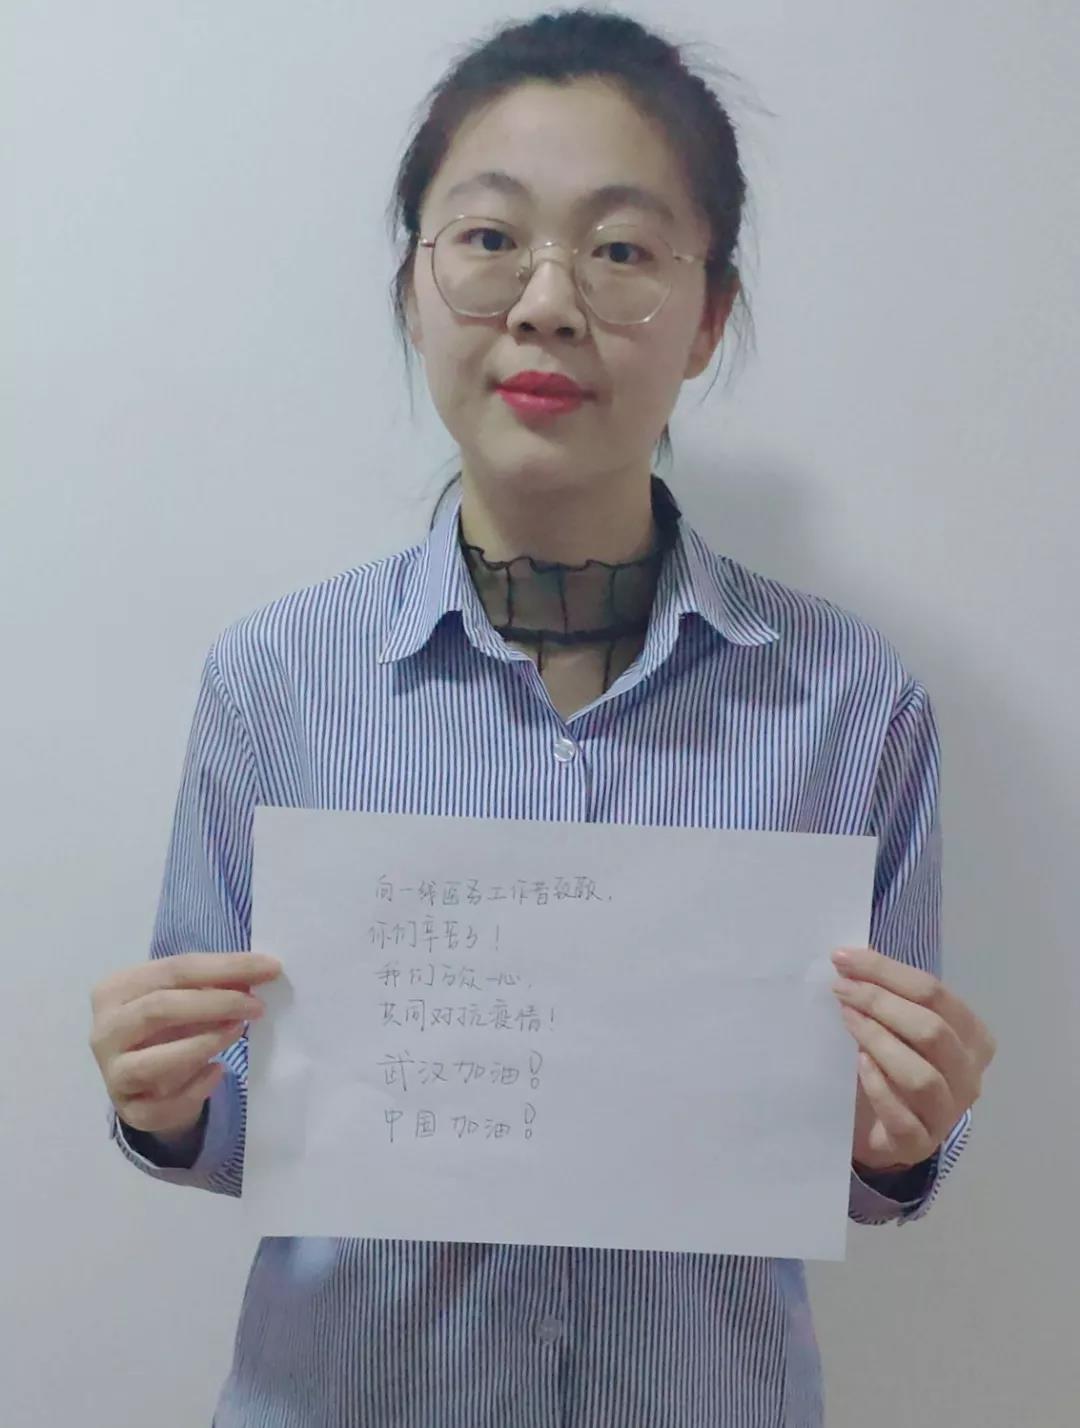 向一线医务工作者致敬，
你们辛苦了！
我们万众一心，
共同对抗疫情！
武汉加油！
中国加油！